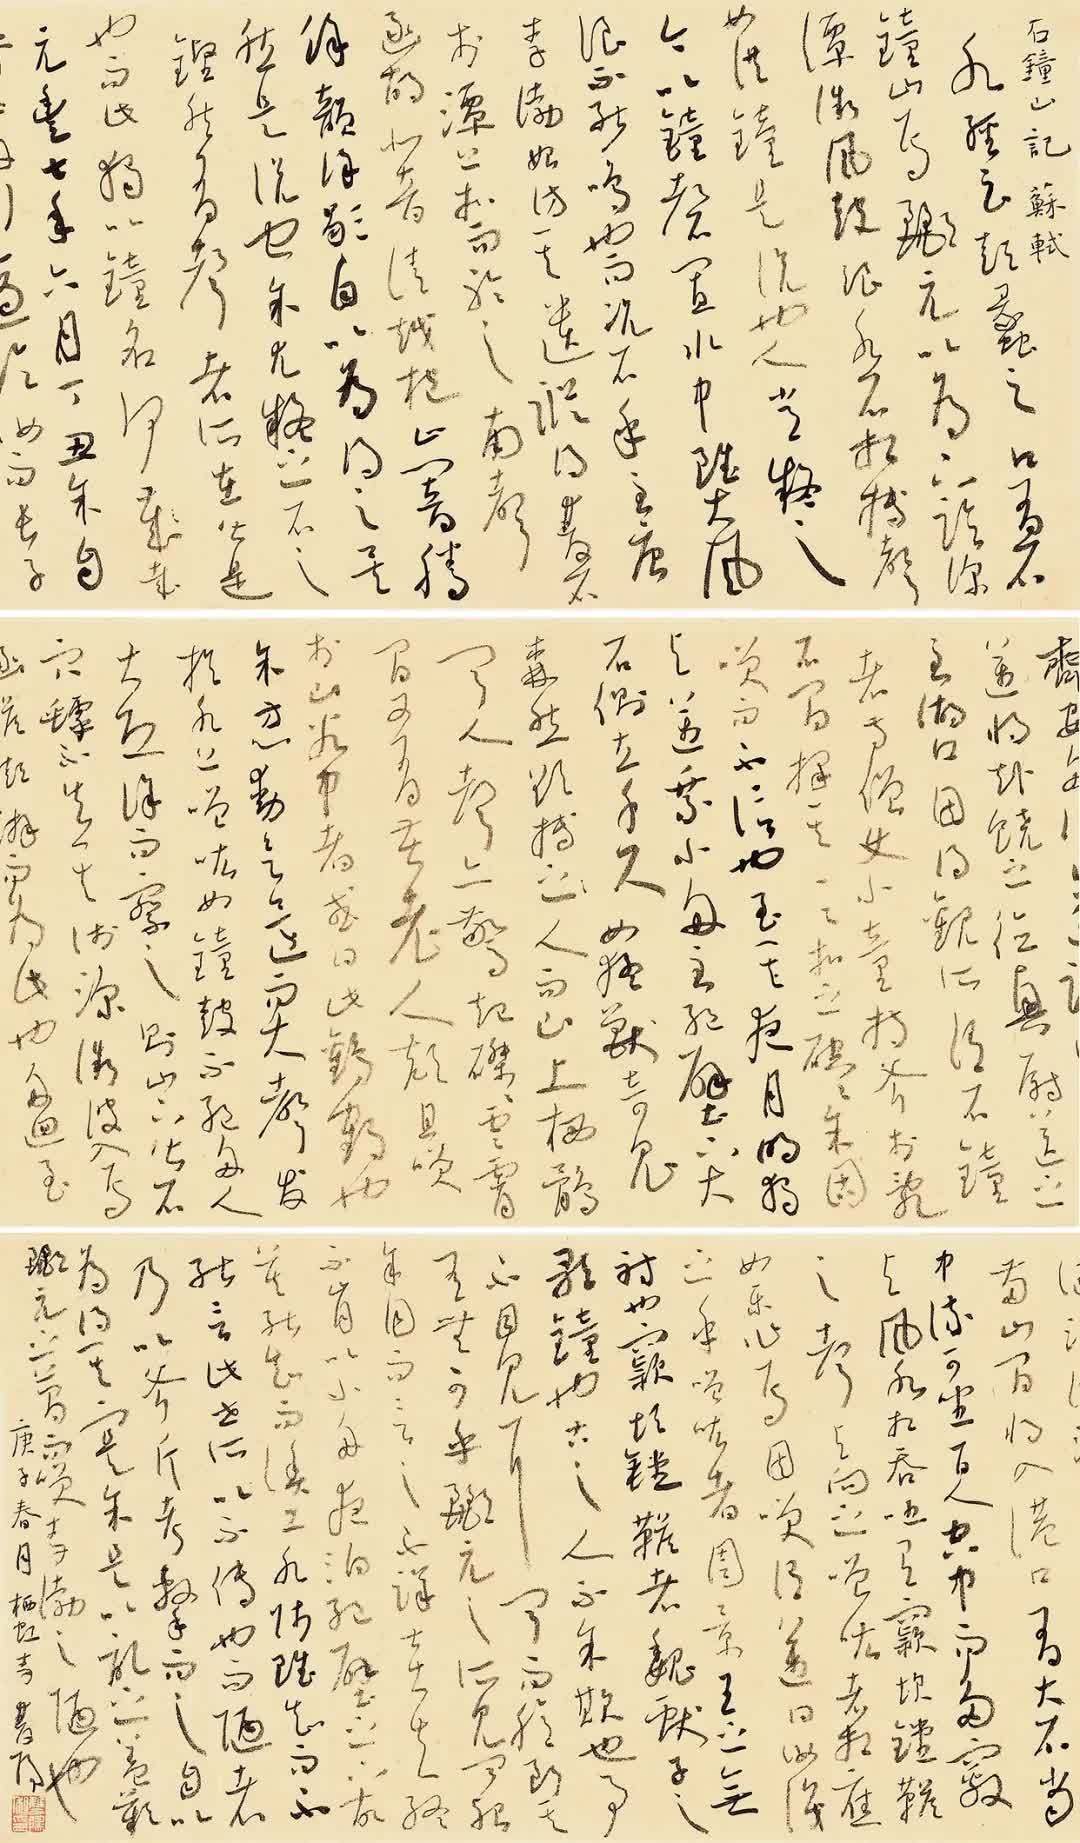 石鐘山記 蘇軾
水經云彭蠡之口有石
鐘山焉酈元以為下臨深
潭微風鼓浪水石相搏聲
如洪鐘是說也人常疑之
今以鐘磬置水中雖大風
浪不能鳴也而況石乎至唐
李渤始訪其遺蹤得雙石
於潭上扣而聆之南聲
函胡北音清越枹止響騰
餘韻徐歇自以為得之矣
然是說也余尤疑之石之
鏗然有聲者所在皆是
也而此獨以鐘名何哉
元豐七年六月丁丑余自
齊安舟行適臨汝而長子
邁將赴饒之德興尉送之
至湖口因得觀所謂石鐘
者寺僧使小童持斧於亂
石間擇其一二扣之硿硿余固
笑而不信也至其夜月明獨
與邁乘小舟至絕壁下大
石側立千尺如猛獸奇鬼
森然欲搏之人而山上栖鶻
聞人聲亦驚起磔磔雲霄
間又有若老人欬且笑
於山谷中者或曰此鸛鶴也
余方心動欲還而大聲發
於水上噌吰如鐘鼓不絕舟人
大恐徐而察之則山下皆石
穴罅不知其淺深微波入焉
涵澹澎湃而為此也舟迴至
兩山間將入港口有大石當
中流可坐百人空中而多竅
與風水相吞吐有窾坎鏜鞳
之聲與向之噌吰者相應
如樂作焉因笑謂邁曰汝識
之乎噌吰者周景王之無
射也窾坎鏜鞳者魏獻子之
歌鐘也古之人不余欺也事
不目見耳聞而臆斷其
有無可乎酈元之所見聞殆與
余同而言之不詳士大夫終
不肯以小舟夜泊絕壁之下故
莫能知而漁工水師雖知而不
能言此世所以不傳也而陋者
乃以斧斤考擊而求之自以
為得其實余是以記之蓋歎
酈元之簡而笑李渤之陋也
庚子春月栖虹書